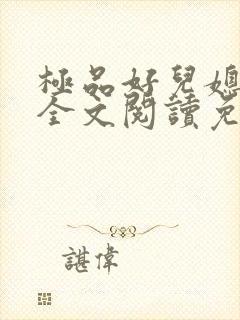 極品好兒媳
全文閱讀免
諶偉